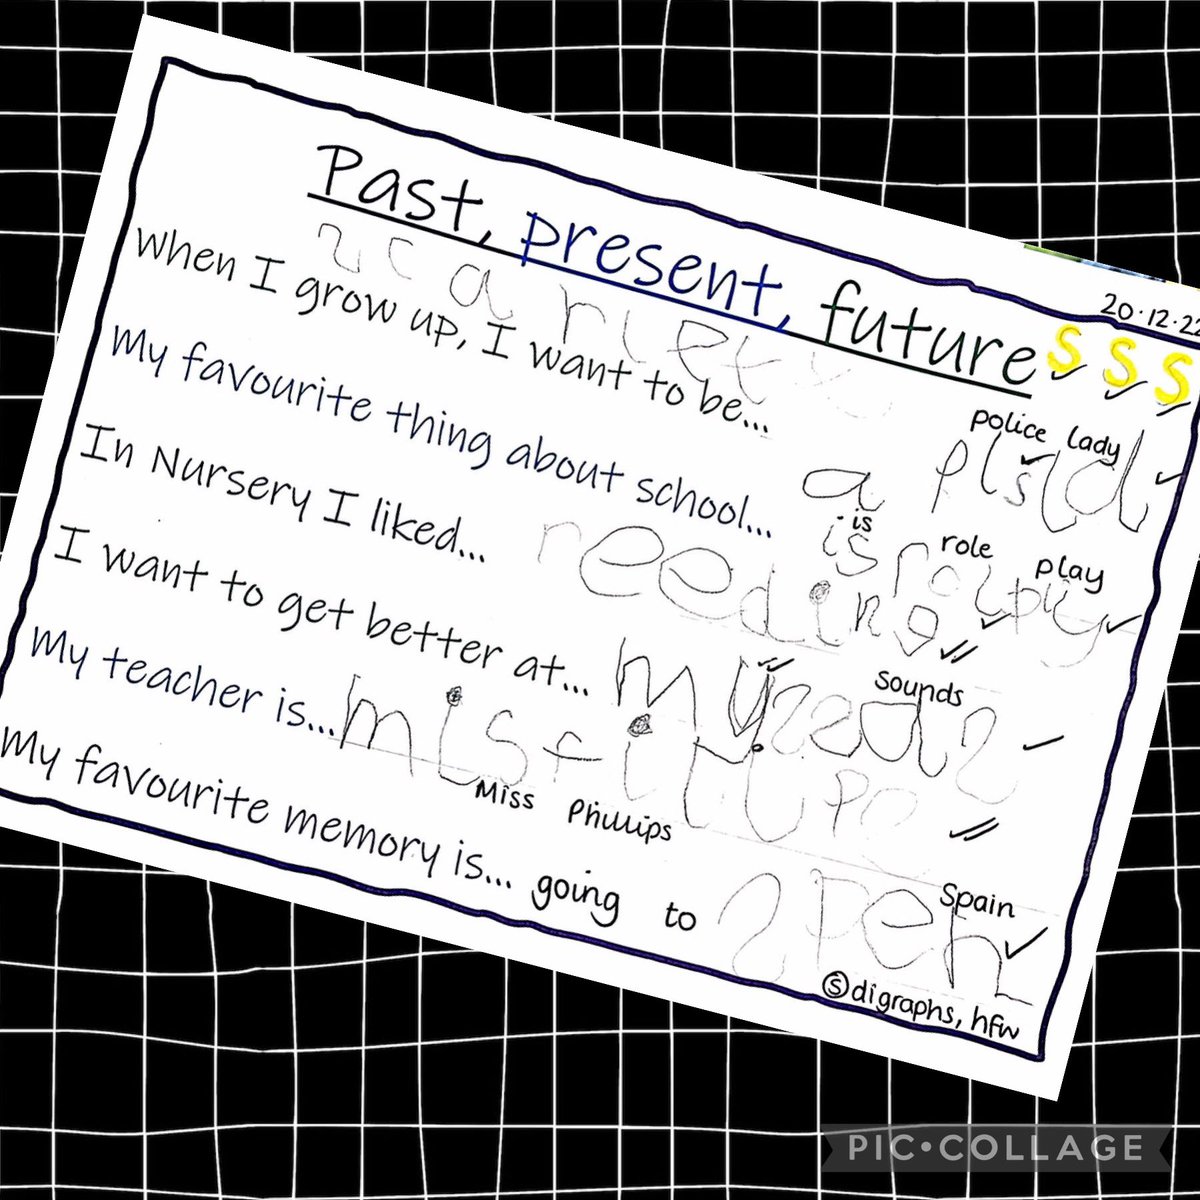 20.12.22
Past, present, future
S S S
scarlett
When I grow up, I want to be...
police lady
a plsld
My favourite thing about school...
is role play
is rolply
In Nursery I liked... reeding
I want to get better at...
sounds
My teacher is...
Miss Phillips
My favourite memory is... going to spen
Spain
Ⓢ digraphs, hfw
PIC•COLLAGE